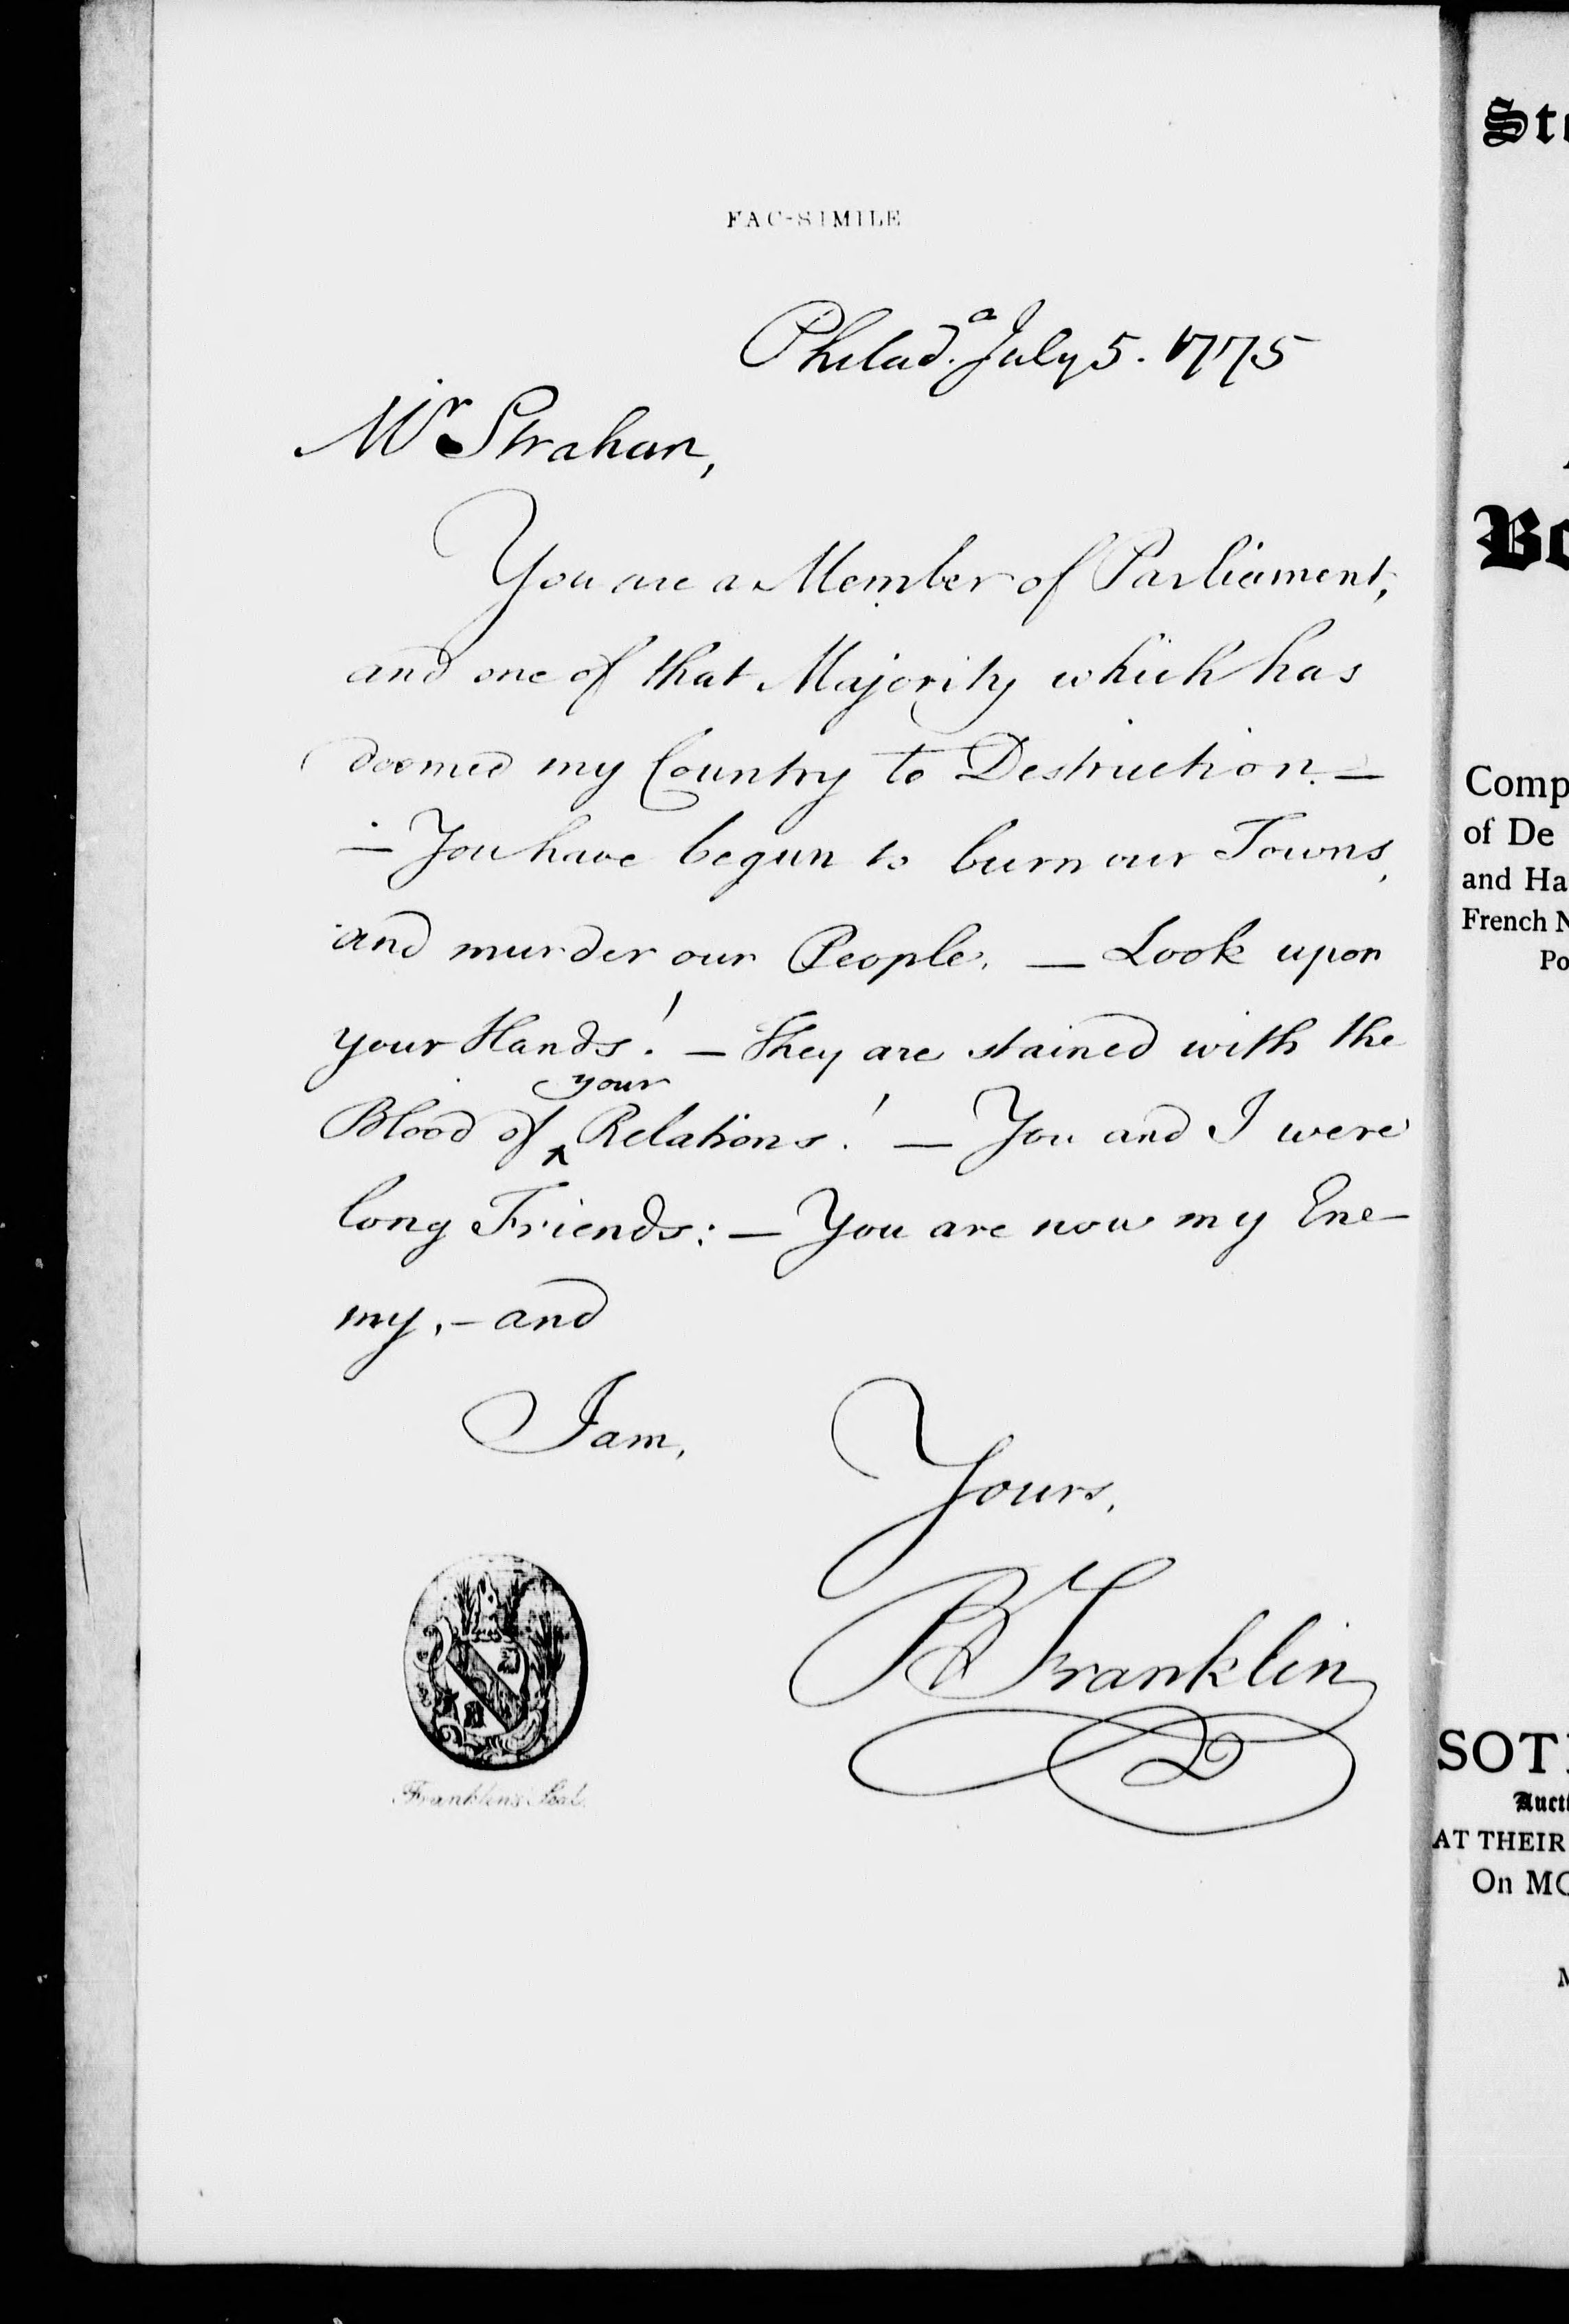 FAC-SIMILE
Philad.ᵃ July 5. 1775
Mʳ Strahan,
You are a Member of Parliament,
and one of that Majority which has
doomed my Country to Destruction. —
— You have begun to burn our Towns,
and murder our People. — Look upon
your Hands! — They are stained with the
your
Blood of ‸ Relations! — You and I were
long Friends: — You are now my Ene-
my, — and
I am,
Yours,
B Franklin
Franklin's Seal.
Sto
Bo
Comp
of De
and Ha
French N
Po
SOT
Aucti
AT THEIR
On MO
M